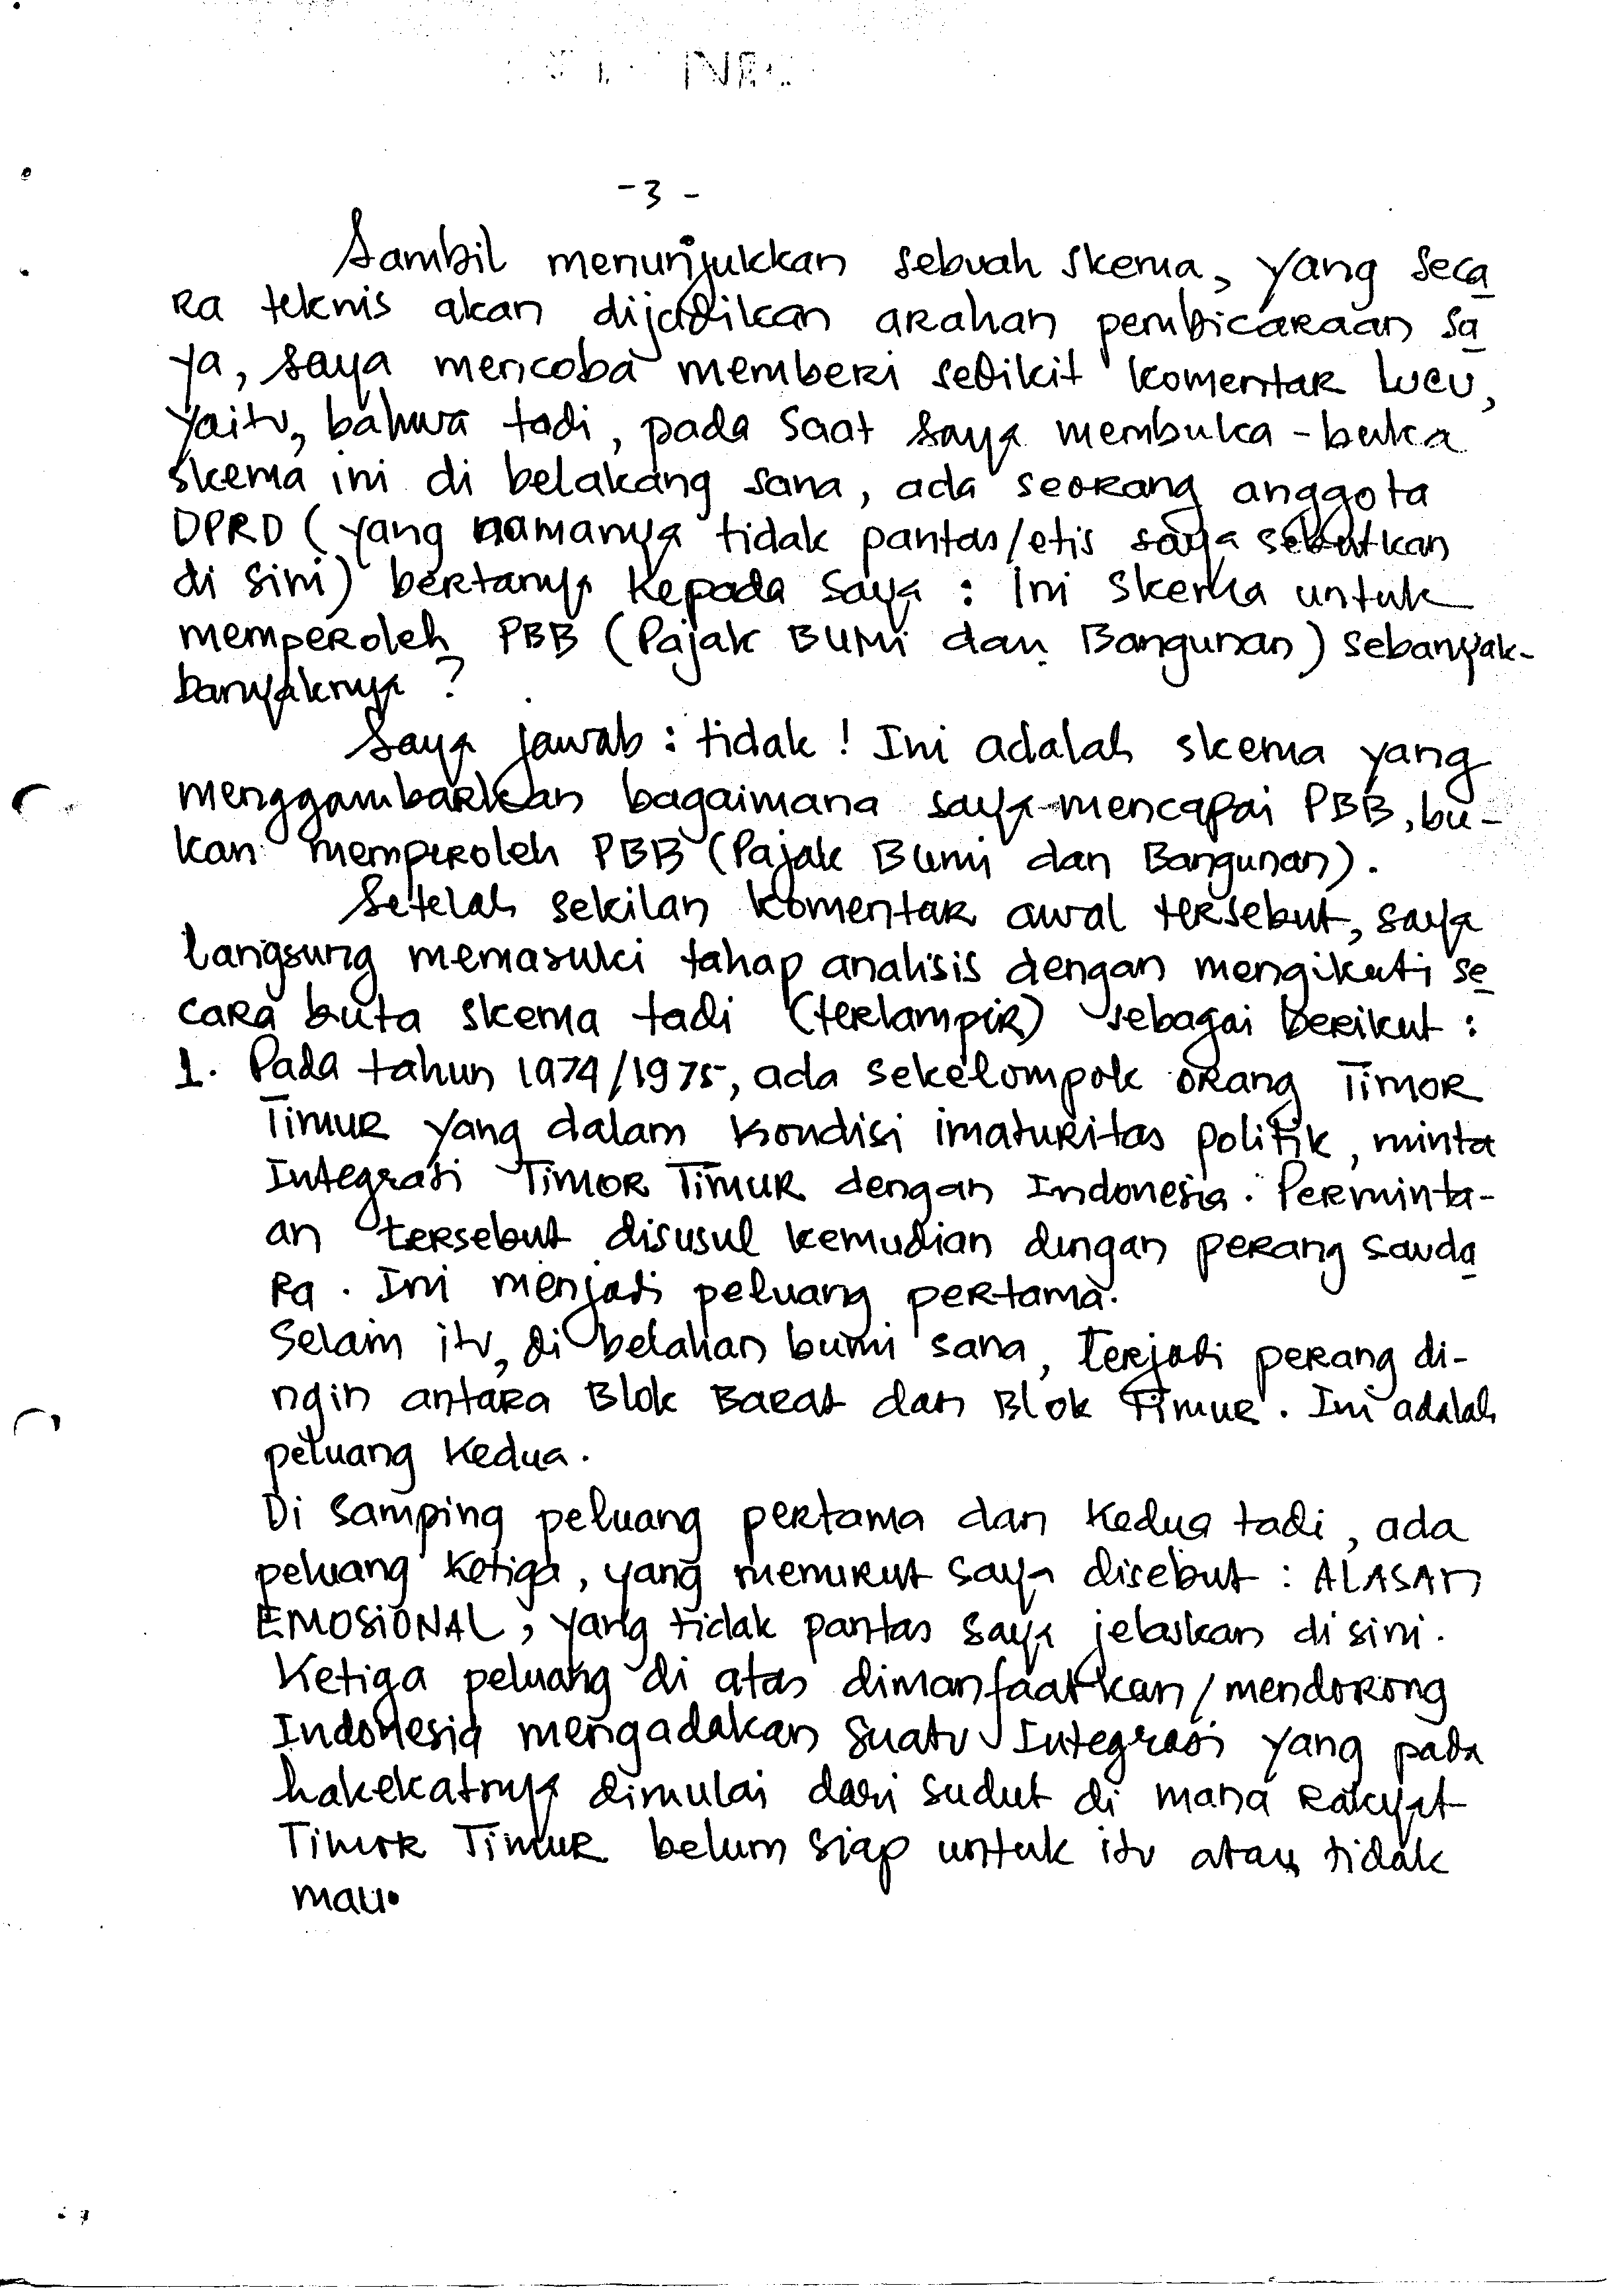 -3-
Sambil menunjukkan sebuah skema, yang seca
ra teknis akan dijadikan arahan pembicaraan sa
ya, saya mencoba memberi sedikit komentar lucu,
yaitu, bahwa tadi, pada saat saya membuka-buka
skema ini di belakang sana, ada seorang anggota
DPRD (yang namanya tidak pantas/etis saya sebutkan
di sini) bertanya kepada saya : Ini skema untuk
memperoleh PBB (Pajak Bumi dan Bangunan) sebanyak-
banyaknya ?
Saya jawab : tidak ! Ini adalah skema yang
menggambarkan bagaimana saya mencapai PBB, bu-
kan memperoleh PBB (Pajak Bumi dan Bangunan).
Setelah sekilan komentar awal tersebut, saya
langsung memasuki tahap analisis dengan mengikuti se
cara buta skema tadi (terlampir) sebagai berikut :
1. Pada tahun 1974/1975, ada sekelompok orang Timor
Timur yang dalam kondisi imaturitas politik, minta
Integrasi Timor Timur dengan Indonesia. Perminta-
an tersebut disusul kemudian dengan perang sauda
ra. Ini menjadi peluang pertama.
Selain itu, di belahan bumi sana, terjadi perang di-
ngin antara Blok Barat dan Blok Timur. Ini adalah
peluang kedua.
Di samping peluang pertama dan kedua tadi, ada
peluang ketiga, yang menurut saya disebut : ALASAN
EMOSIONAL, yang tidak pantas saya jelaskan di sini.
Ketiga peluang di atas dimanfaatkan/mendorong
Indonesia mengadakan suatu Integrasi yang pada
hakekatnya dimulai dari sudut di mana rakyat
Timor Timur belum siap untuk itu atau tidak
mau.